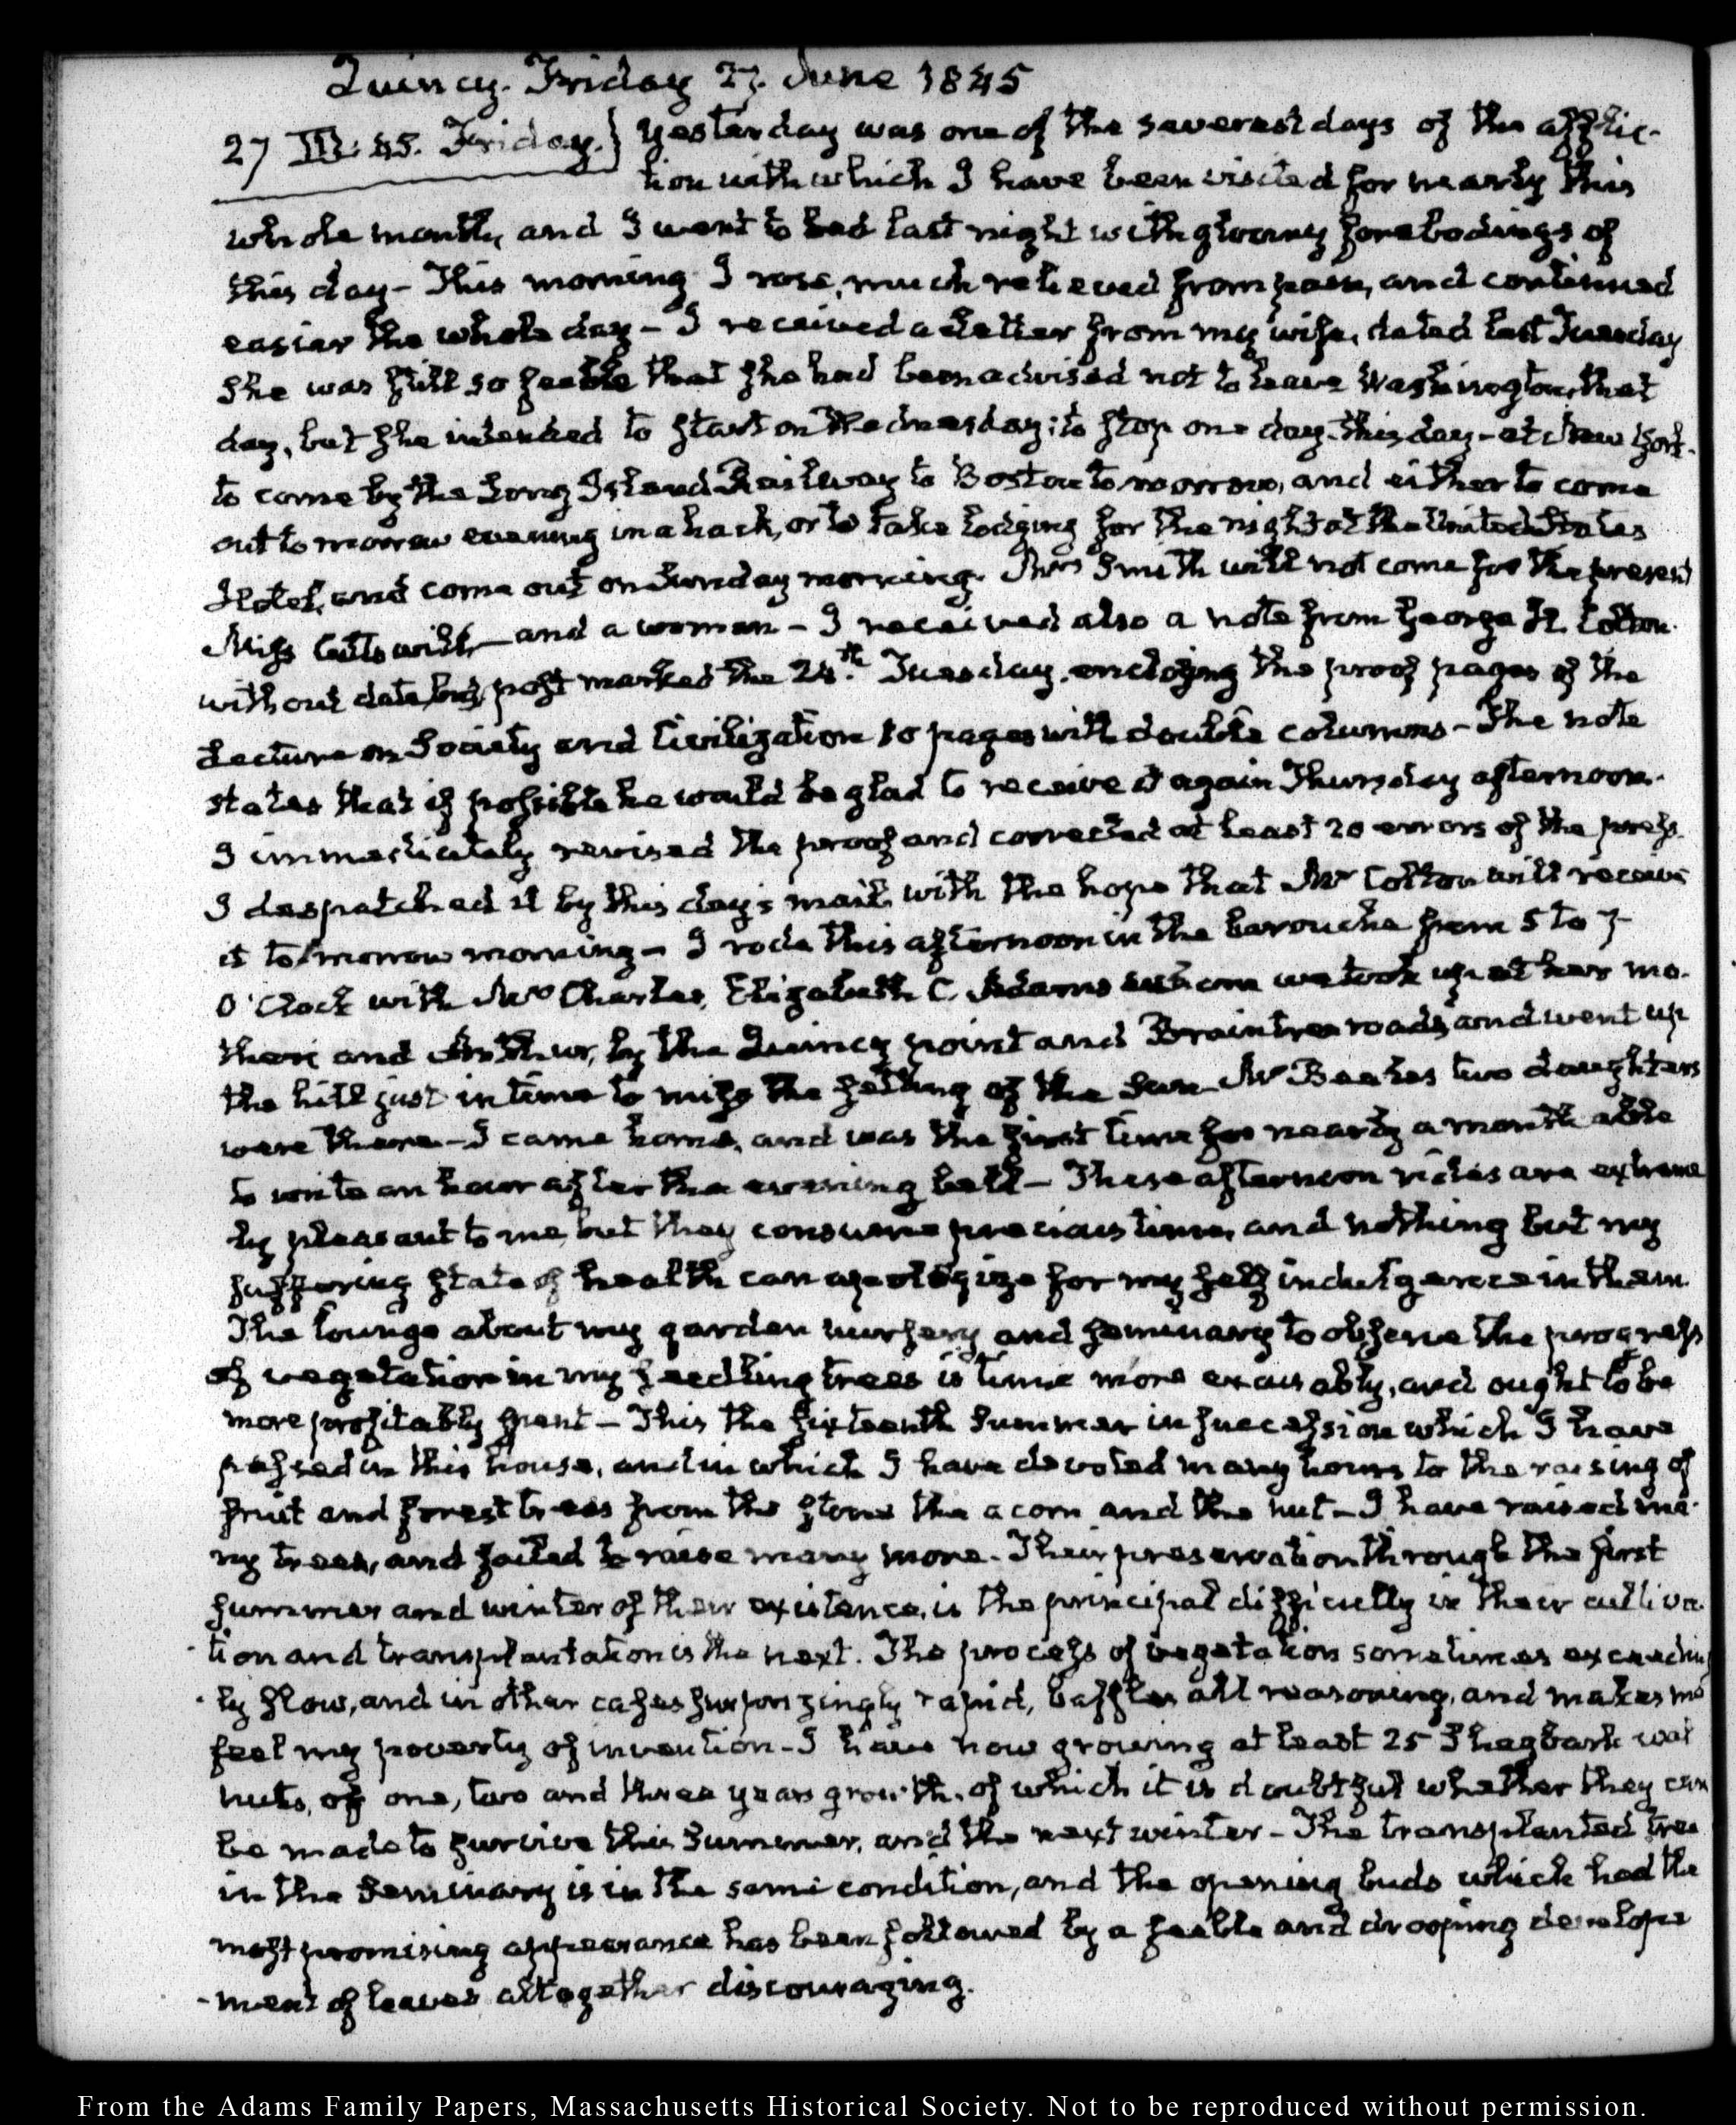 Quincy. Friday 27. June 1845
27 III:45. Friday.} Yesterday was one of the severest days of the afflic-
tion with which I have been visited for nearly this
whole month, and I went to bed last night with gloomy forebodings of
this day- This morning I rose, much relieved from pain, and continued
easier the whole day- I received a letter from my wife, dated last Tuesday
She was still so feeble that she had been advised not to leave Washington that
day, but she intended to start on Wednesday; to stop one day-this day-at New York-
to come by the Long Island Railway to Boston to morrow, and either to come
out to morrow evening in a hack, or to take lodging for the night at the United States
Hotel, and come out on Sunday morning. Mrs Smith will not come for the present
Miss Cutts will-and a woman- I received also a note from George H. Colton.
without date, but post marked the 24.th Tuesday, enclosing the proof pages of the
Lecture on Society and Civilization 10 pages with double columns- The note
states that if possible he would be glad to receive it again Thursday afternoon.
I immediately revised the proof and corrected at least 20 errors of the press.
I despatched it by this day's mail with the hope that Mr Colton will receive
it to morrow morning- I rode this afternoon in the barouche from 5 to 7
O'Clock with Mrs Charles, Elizabeth C. Adams whom we took up at her mo-
ther's and Arthur, by the Quincy point and Braintree roads and went up
the hill just in time to miss the setting of the Sun- Mr Beales two daughters
were there- I came home, and was the first time for nearly a month able
to write an hour after the evening bell- These afternoon rides are extreme
ly pleasant to me, but they consume precious time, and nothing but my
suffering state of health can apologize for my self indulgence in them.
The lounge about my garden nursery and seminary to observe the progress
of vegetation in my seedling trees is time more excusably, and ought to be
more profitably spent- This the sixteenth Summer in succession which I have
passed in this house, and in which I have devoted many hours to the raising of
fruit and forrest trees from the stone the acorn and the nut- I have raised ma-
ny trees, and failed to raise many more. Their preservation through the first
summer and winter of their existence, is the principal difficulty in their cultiva-
tion and transplantation is the next. The process of vegetation sometimes exceeding
-ly slow, and in other cases surprizingly rapid, baffles all reasoning, and makes me
feel my poverty of invention- I have now growing at least 25 Shagbark wal
nuts, of one, two and three years growth, of which it is doubtful whether they can
be made to survive this Summer, and the next winter- The transplanted tree
in the Seminary is in the same condition, and the opening buds which had the
most promising appearance has been followed by a feeble and drooping develope
-ment of leaves altogether discouraging.
From the Adams Family Papers, Massachusetts Historical Society. Not to be reproduced without permission.